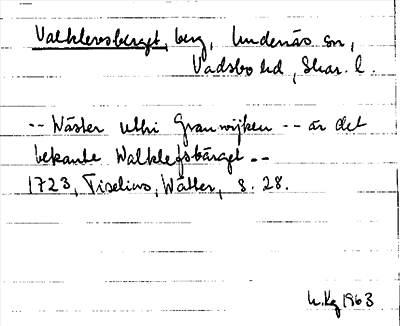 Valklevsberget, berg, Undenäs sn,
Vadsbo hd, Skar. l.
-- Wäster uthi Granwijken -- är det
bekante Walklefsbärget --
1723, Tiselius, Wätter, s. 28.
1963